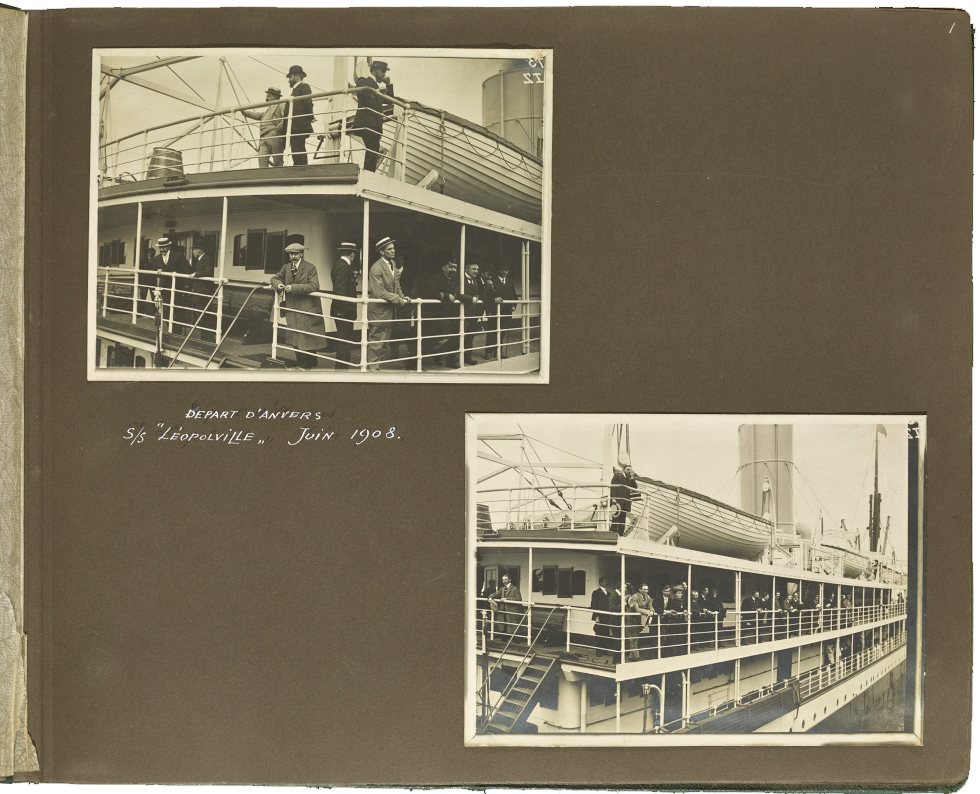 1
73
ZZ
DEPART D'ANVERS
S/S "LÉOPOLVILLE„ JUIN 1908.
ZZ